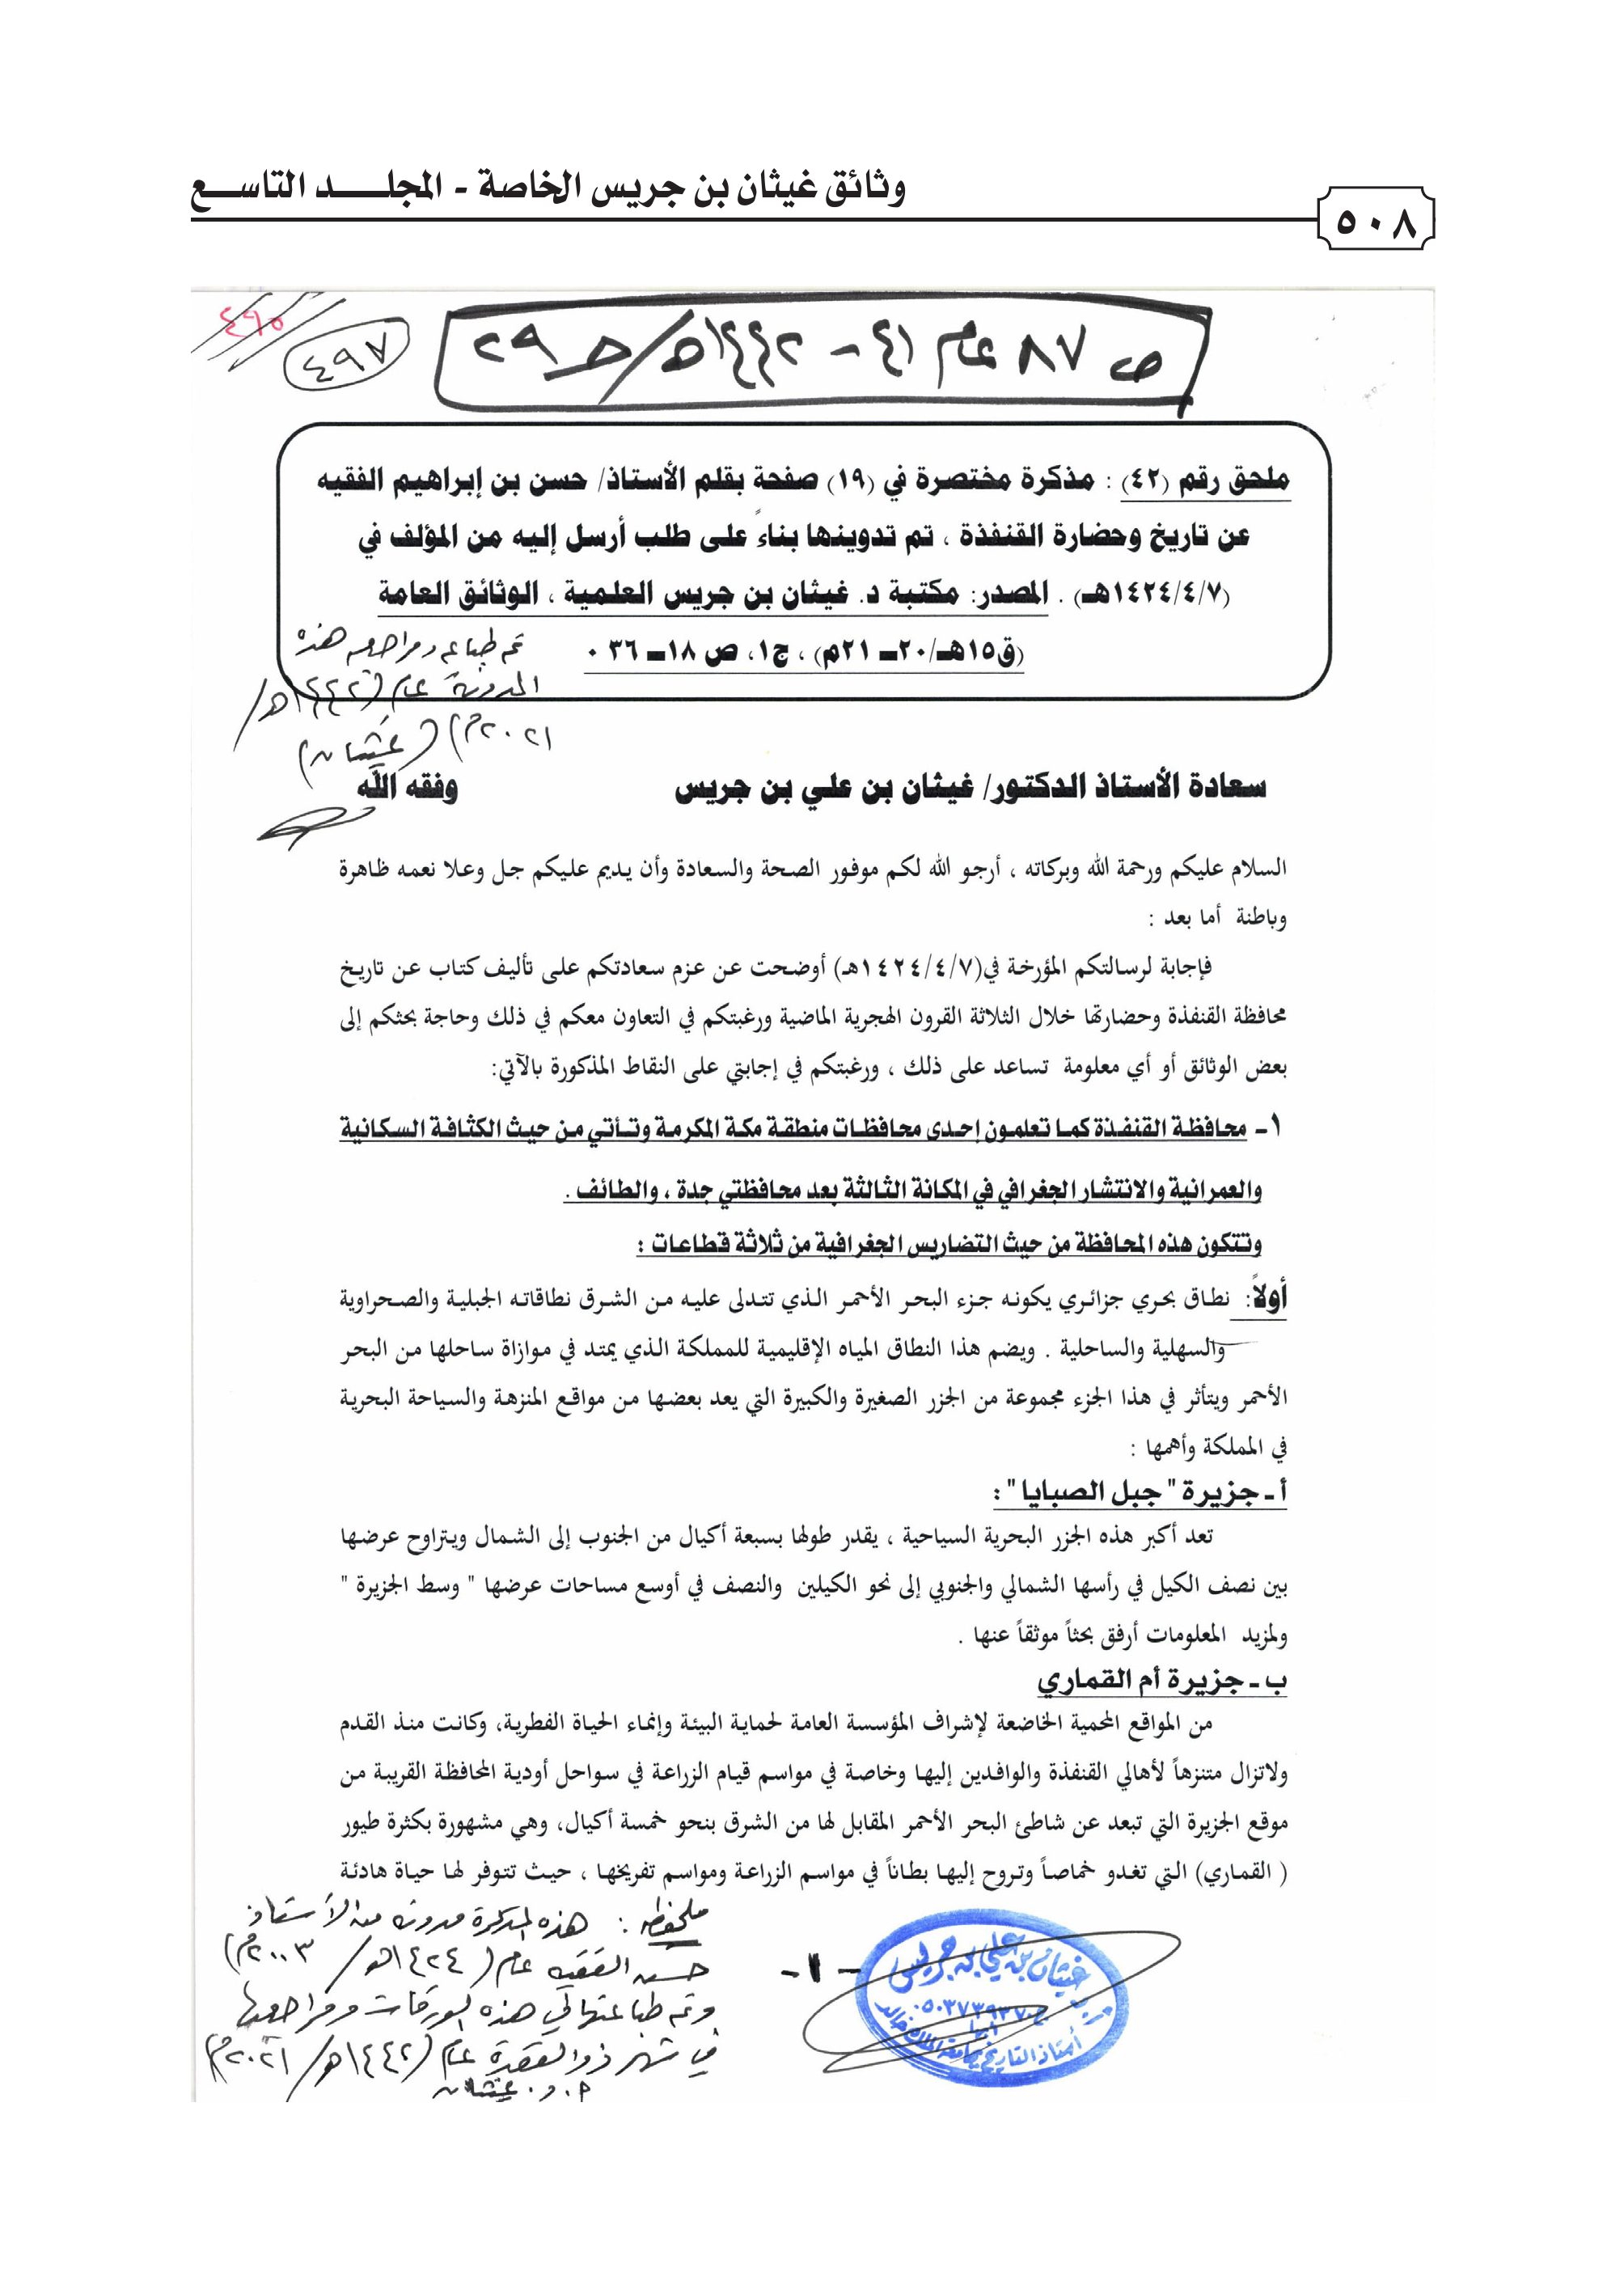 وثائق غيثان بن جريس الخاصة - المجلـــــد التاســـع
٥٠٨
٤٩٥
٤٩٧
ص ٨٧ عام ٤١ - ١٤٤٢هـ/ حـ ٢٩
ملحق رقم (٤٢) : مذكرة مختصرة في (١٩) صفحة بقلم الأستاذ/ حسن بن إبراهيم الفقيه
عن تاريخ وحضارة القنفذة ، تم تدوينها بناءً على طلب أرسل إليه من المؤلف في
(١٤٢٤/٤/٧هـ) . المصدر: مكتبة د. غيثان بن جريس العلمية ، الوثائق العامة
(ق١٥هـ/٢٠ــ ٢١م) ، ج١، ص ١٨ــ ٣٦ ٠
تم طباعة ومراجعة هذه
المدونة عام (١٤٤٢هـ/
٢٠٢١م) (غيثان)
سعادة الأستاذ الدكتور/ غيثان بن علي بن جريس وفقه الله
السلام عليكم ورحمة الله وبركاته ، أرجو الله لكم موفور الصحة والسعادة وأن يديم عليكم جل وعلا نعمه ظاهرة
وباطنة أما بعد :
فإجابة لرسالتكم المؤرخة في(١٤٢٤/٤/٧هـ) أوضحت عن عزم سعادتكم على تأليف كتاب عن تاريخ
محافظة القنفذة وحضارتها خلال الثلاثة القرون الهجرية الماضية ورغبتكم في التعاون معكم في ذلك وحاجة بحثكم إلى
بعض الوثائق أو أي معلومة تساعد على ذلك ، ورغبتكم في إجابتي على النقاط المذكورة بالآتي:
١- محافظة القنفذة كما تعلمون إحدى محافظات منطقة مكة المكرمة وتأتي من حيث الكثافة السكانية
والعمرانية والانتشار الجغرافي في المكانة الثالثة بعد محافظتي جدة ، والطائف .
وتتكون هذه المحافظة من حيث التضاريس الجغرافية من ثلاثة قطاعات :
أولاً: نطاق بحري جزائري يكونه جزء البحر الأحمر الذي تتدلى عليه من الشرق نطاقاته الجبلية والصحراوية
والسهلية والساحلية . ويضم هذا النطاق المياه الإقليمية للمملكة الذي يمتد في موازاة ساحلها من البحر
الأحمر ويتأثر في هذا الجزء مجموعة من الجزر الصغيرة والكبيرة التي يعد بعضها من مواقع المنزهة والسياحة البحرية
في المملكة وأهمها :
أ ـ جزيرة " جبل الصبايا " :
تعد أكبر هذه الجزر البحرية السياحية ، يقدر طولها بسبعة أكيال من الجنوب إلى الشمال ويتراوح عرضها
بين نصف الكيل في رأسها الشمالي والجنوبي إلى نحو الكيلين والنصف في أوسع مساحات عرضها " وسط الجزيرة "
ولمزيد المعلومات أرفق بحثاً موثقاً عنها .
ب ـ جزيرة أم القماري
من المواقع المحمية الخاضعة لإشراف المؤسسة العامة لحماية البيئة وإنماء الحياة الفطرية، وكانت منذ القدم
ولاتزال متنزهاً لأهالي القنفذة والوافدين إليها وخاصة في مواسم قيام الزراعة في سواحل أودية المحافظة القريبة من
موقع الجزيرة التي تبعد عن شاطئ البحر الأحمر المقابل لها من الشرق بنحو خمسة أكيال، وهي مشهورة بكثرة طيور
( القماري) التي تغدو خماصاً وتروح إليها بطاناً في مواسم الزراعة ومواسم تفريخها ، حيث تتوفر لها حياة هادئة
ملحظة : هذه المذكرة مدونة من الأستاذ
حسن الفقيه عام (١٤٢٤هـ/ ٢٠٠٣م)
وتم طباعتها في هذه الورقات ومراجعتها
في شهر ذو القعدة عام (١٤٤٢هـ/ ٢٠٢١م)
أ . د . غيثان
- ١ -
غيثان بن علي بن جريس
ج ٠٥٠٣٧٣٩٣٧٠
أبها
أستاذ التاريخ بجامعة الملك خالد